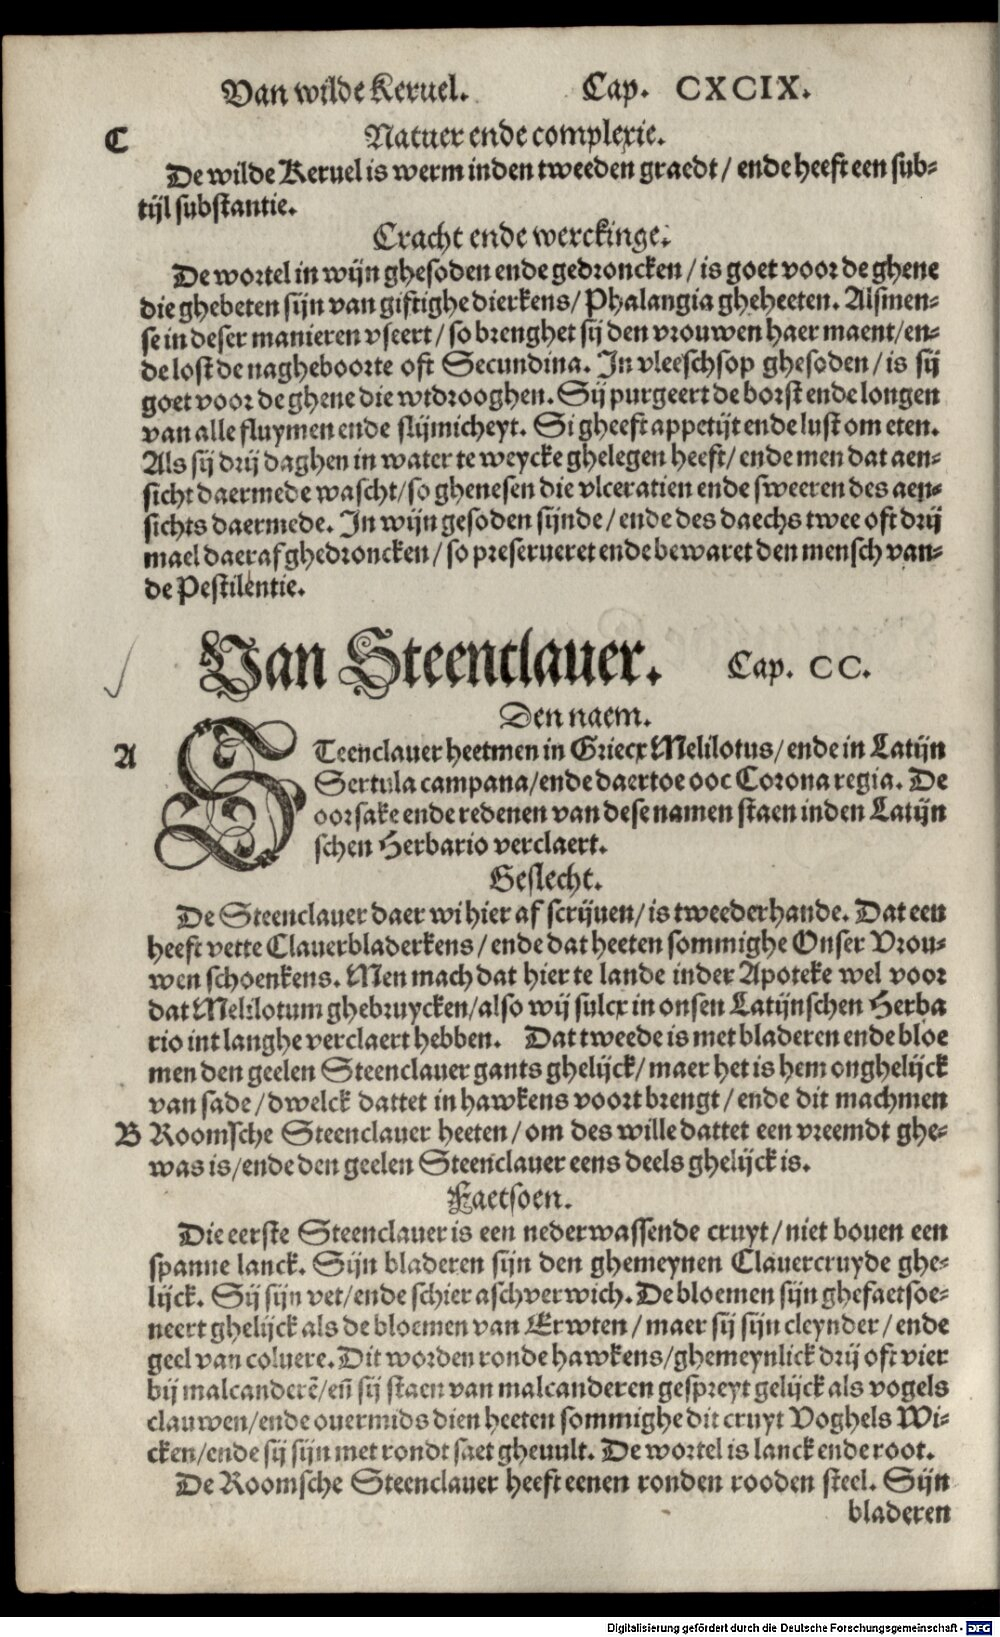 Van wilde Keruel. Cap. CXCIX.
C Natuer ende complexie.
De wilde Keruel is werm inden tweeden graedt / ende heeft een sub-
tijl substantie.
Cracht ende werckinge.
De wortel in wijn ghesoden ende gedroncken / is goet voor de ghene
die ghebeten sijn van giftighe dierkens / Phalangia gheheeten. Alsmen-
se in deser manieren vseert / so brenghet sij den vrouwen haer maent / en-
de lost de nagheboorte oft Secundina. In vleeschsop ghesoden / is sij
goet voor de ghene die wtdrooghen. Sij purgeert de borst ende longen
van alle fluymen ende slijmicheyt. Si gheeft appetijt ende lust om eten.
Als sij drij daghen in water te weycke ghelegen heeft / ende men dat aen-
sicht daermede wascht / so ghenesen die vlceratien ende sweeren des aen-
sichts daermede. In wijn gesoden sijnde / ende des daechs twee oft drij
mael daer af ghedroncken / so preserueret ende bewaret den mensch van-
de Pestilentie.
Van Steenclauer. Cap. CC.
Den naem.
A STeenclauer heetmen in Griecx Melilotus / ende in Latijn
Sertula campana / ende daertoe ooc Corona regia. De
oorsake ende redenen van dese namen staen inden Latijn
schen Herbario verclaert.
Geslecht.
De Steenclauer daer wi hier af scrijuen / is tweederhande. Dat een
heeft vette Clauerbladerkens / ende dat heeten sommighe Onser Vrou-
wen schoenkens. Men mach dat hier te lande inder Apoteke wel voor
dat Melilotum ghebruycken / also wij sulcx in onsen Latijnschen Herba
rio int langhe verclaert hebben. Dat tweede is met bladeren ende bloe
men den geelen Steenclauer gants ghelijck / maer het is hem onghelijck
van sade / dwelck dattet in hawkens voort brengt / ende dit machmen
B Roomsche Steenclauer heeten / om des wille dattet een vreemdt ghe-
was is / ende den geelen Steenclauer eens deels ghelijck is.
Faetsoen.
Die eerste Steenclauer is een nederwassende cruyt / niet bouen een
spanne lanck. Sijn bladeren sijn den ghemeynen Clauercruyde ghe-
lijck. Sij sijn vet / ende schier aschverwich. De bloemen sijn ghefaetsoe-
neert ghelijck als de bloemen van Erwten / maer sij sijn cleynder / ende
geel van coluere. Dit worden ronde hawkens / ghemeynlick drij oft vier
bij malcanderẽ / eñ sij staen van malcanderen gespreyt gelijck als vogels
clauwen / ende ouermids dien heeten sommighe dit cruyt Voghels Wi-
cken / ende sij sijn met rondt saet gheuult. De wortel is lanck ende root.
De Roomsche Steenclauer heeft eenen ronden rooden steel. Sijn
bladeren
Digitalisierung gefördert durch die Deutsche Forschungsgemeinschaft - DFG